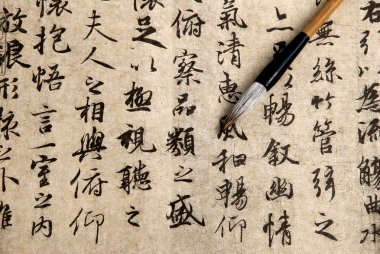 右引以為流觴曲水
無絲竹管弦之
足以暢敘幽情
氣清惠風和暢仰
俯察品類之盛
懷足以極視聽之
夫人之相與俯仰
懷抱悟言一室之內
放浪形骸之外雖